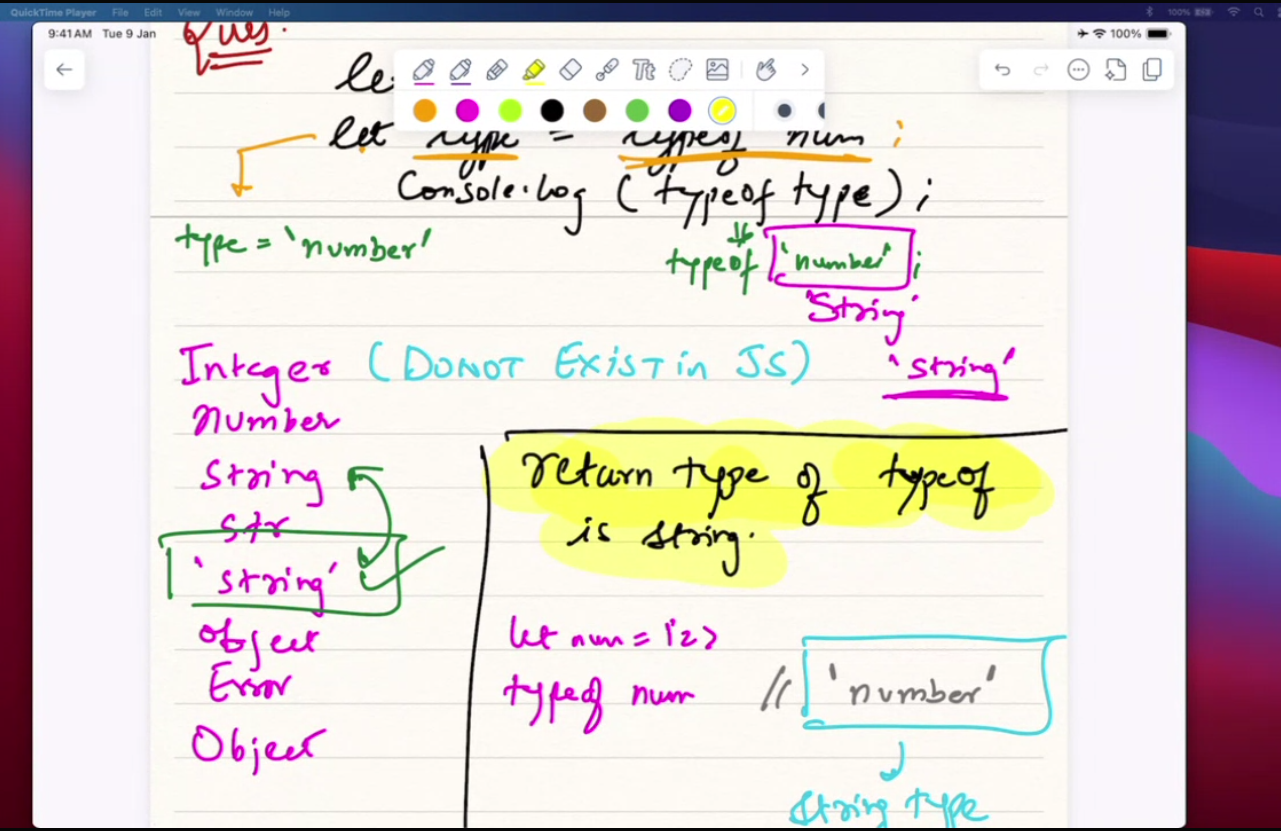 QuickTime Player File Edit View Window Help 100%
9:41 AM Tue 9 Jan 100%
Ques.
Tt
let type = typeof num ;
Console.log ( typeof type ) ;
type = 'number'
typeof 'number' ;
'String'
Integer ( DO NOT EXIST in JS )
'string'
Number
String
str
'string'
object
Error
Object
return type of typeof
is string.
let num = 123
typeof num // 'number'
string type